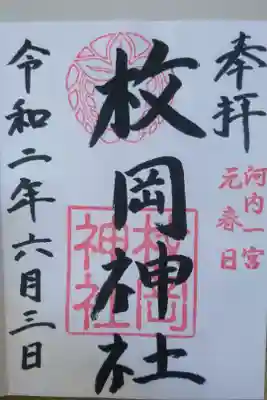 奉拝
河内一宮
元春日
枚岡神社
枚岡
神社
令和二年六月三日